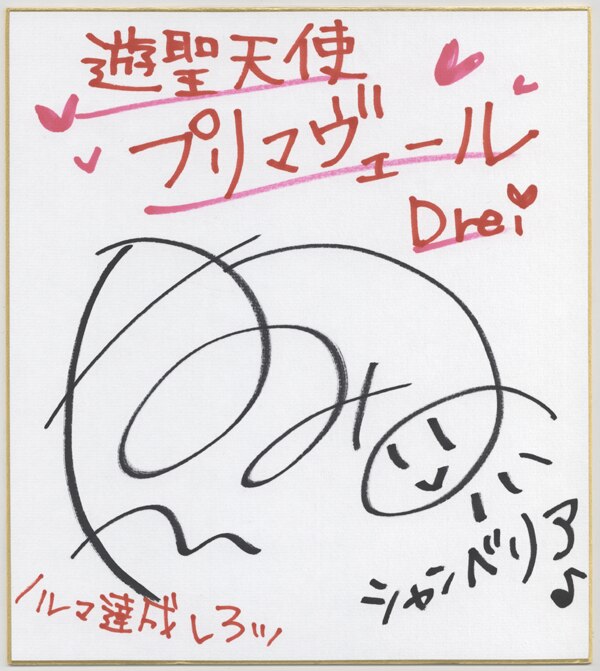 遊聖天使
プリマヴェール
Drei
シャンベリア♪
ノルマ達成しろッ